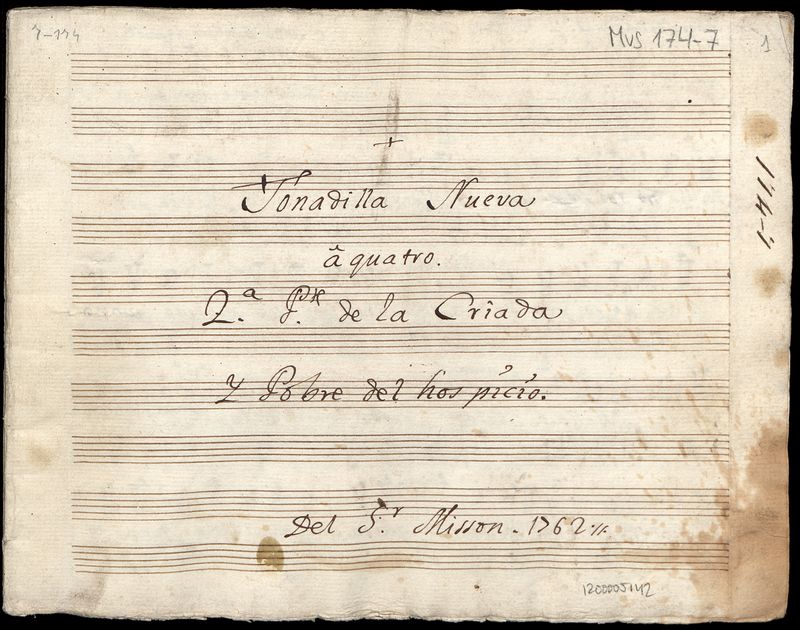 7-174
Mus 174-7
1
+
Tonadilla Nueva
â quatro.
2.ª P.te de la Criada
Y Pobre del hospicio.
Del S.r Misson. 1762.
174-7
1200005142